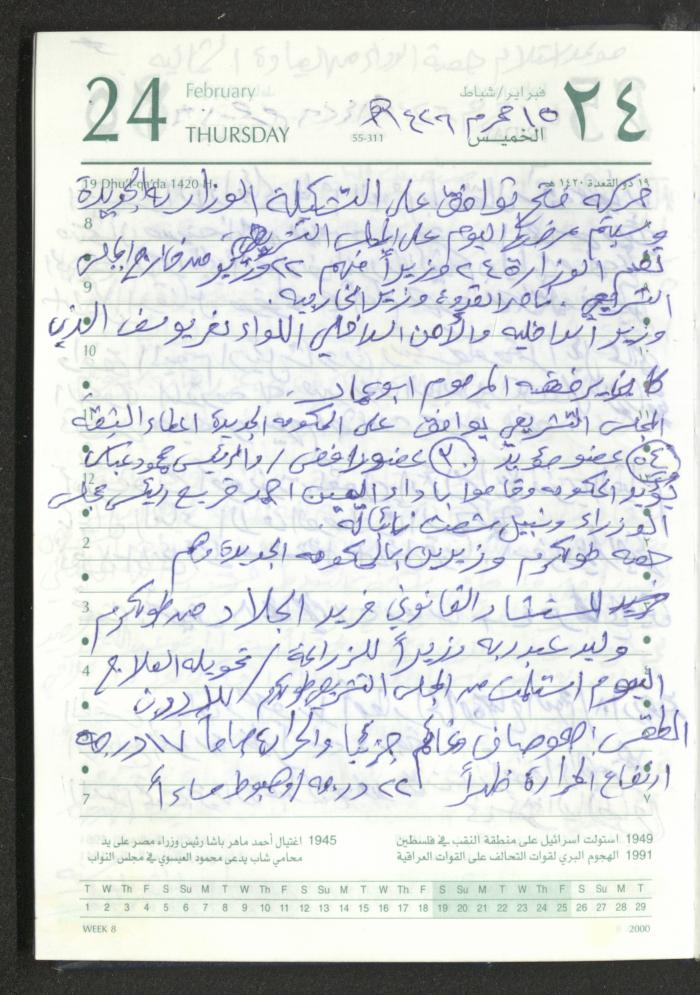 24
February
THURSDAY
فبراير/شباط
الخميس
٢٤
55-311
١٥ محرم ١٤٢٦
19 Dhu'l-qa'da 1420 H
١٩ ذو القعدة ١٤٢٠ هـ
حركة فتح توافق على التشكيلة الوزارية الجديدة
وسيتم عرضها اليوم على المجلس التشريعي
تضم الوزارة ٢٤ وزيراً منهم ٢٢ وزير من خارج المجلس
التشريعي. ناصر القدوة وزير الخارجية.
وزير الداخلية والأمن الداخلي اللواء نصر يوسف الذي
كان يرفضه المرحوم ابو عمار
المجلس التشريعي يوافق على الحكومة الجديدة اعطاء الثقة
٥٤ عضو مؤيد عضو رافض / والرئيس محمود عباس
يؤيد الحكومة وقاموا باداء اليمين احمد قريع رئيس مجلس
الوزراء ونبيل شعث نيابة
حصة طولكرم وزيرين بالحكومة الجديدة وهم
المستشار القانوني فريد الجلاد من طولكرم
وليد عبد ربه وزيراً للزراعة / تحويلة العلاج
اليوم استلمت من المجلس التشريعي طولكرم / للاردن
الطقس: صافي وغائم جزئيا والحرارة صباحاً ١٧ درجة
ارتفاع الحرارة ظهراً ٢٢ درجة وهبوط مساءاً
8
9
10
12
2
3
4
7
٧
1949 استولت اسرائيل على منطقة النقب في فلسطين
1991 الهجوم البري لقوات التحالف على القوات العراقية
1945 اغتيال أحمد ماهر باشا رئيس وزراء مصر على يد
محامي شاب يدعى محمود العيسوي في مجلس النواب
T W Th F S Su M T W Th F S Su M T W Th F S Su M T W Th F S Su M T
1 2 3 4 5 6 7 8 9 10 11 12 13 14 15 16 17 18 19 20 21 22 23 24 25 26 27 28 29
WEEK 8
2000